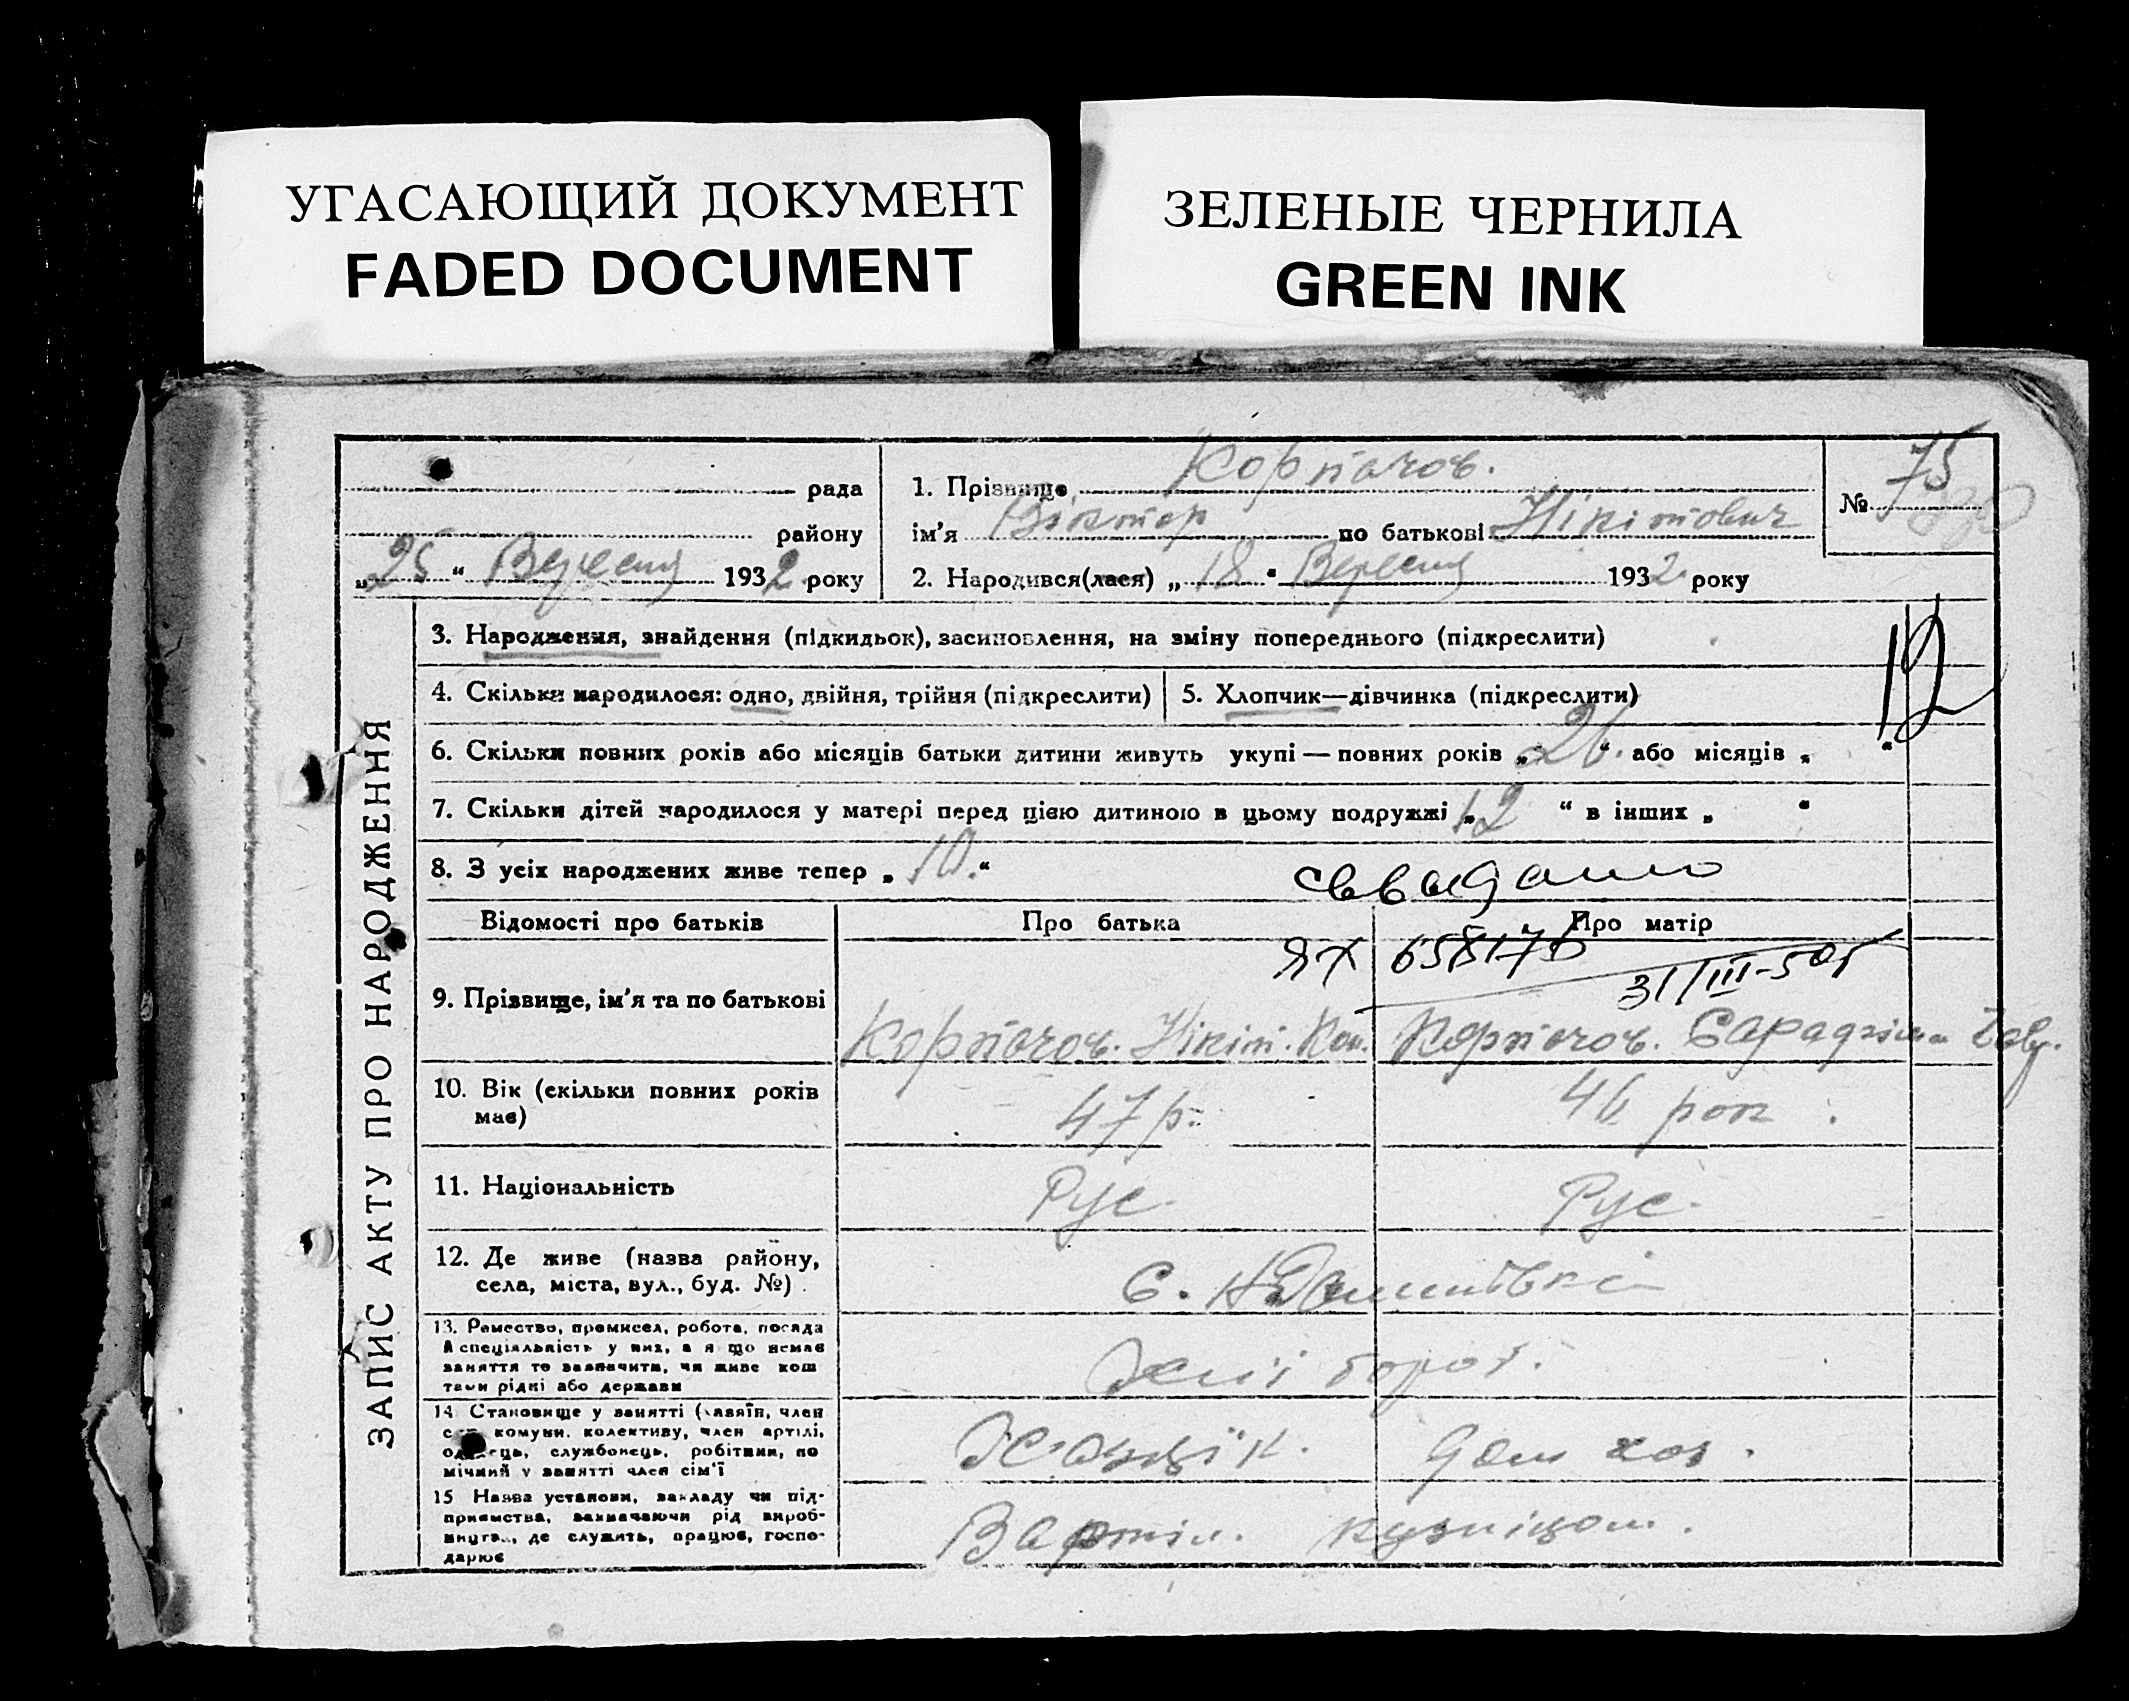 УГАСАЮЩИЙ ДОКУМЕНТ
FADED DOCUMENT
ЗЕЛЕНЫЕ ЧЕРНИЛА
GREEN INK
ЗАПИС АКТУ ПРО НАРОДЖЕННЯ
рада
району
„25“ Вересня 1932 року
1. Прізвище Корпачов.
ім'я Віктор по батькові Нікітович
2. Народився(лася) „18“ Вересня 1932 року
№ 75
3. Народження, знайдення (підкидьок), засиновлення, на зміну попереднього (підкреслити)
12
4. Скільки народилося: одно, двійня, трійня (підкреслити)
5. Хлопчик—дівчинка (підкреслити)
6. Скільки повних років або місяців батьки дитини живуть укупі — повних років „26“ або місяців „ “
7. Скільки дітей народилося у матері перед цією дитиною в цьому подружжі „12“ в інших „ “
8. З усіх народжених живе тепер „10.“
Відомості про батьків
Про батька
Про матір
ЯХ 658176
31/III-50г
9. Прізвище, ім'я та по батькові
Корпачов. Нікіт.
Корпачов.
10. Вік (скільки повних років має)
47 р.
46 рок
11. Національність
Рус.
Рус.
12. Де живе (назва району, села, міста, вул., буд. №)
с.
13. Ремество, промисел, робота, посада й спеціяльність у них, а якщо немає заняття то зазначити, чи живе коштами рідні або держави
14. Становище у занятті (хазяїн, член с.-г. комуни, колективу, член артілі, одинець, службовець, робітник, помічний у занятті член сім'ї
дом хоз.
15 Назва установи, закладу чи підприємства, зазначаючи рід виробництва, де служить, працює, господарює